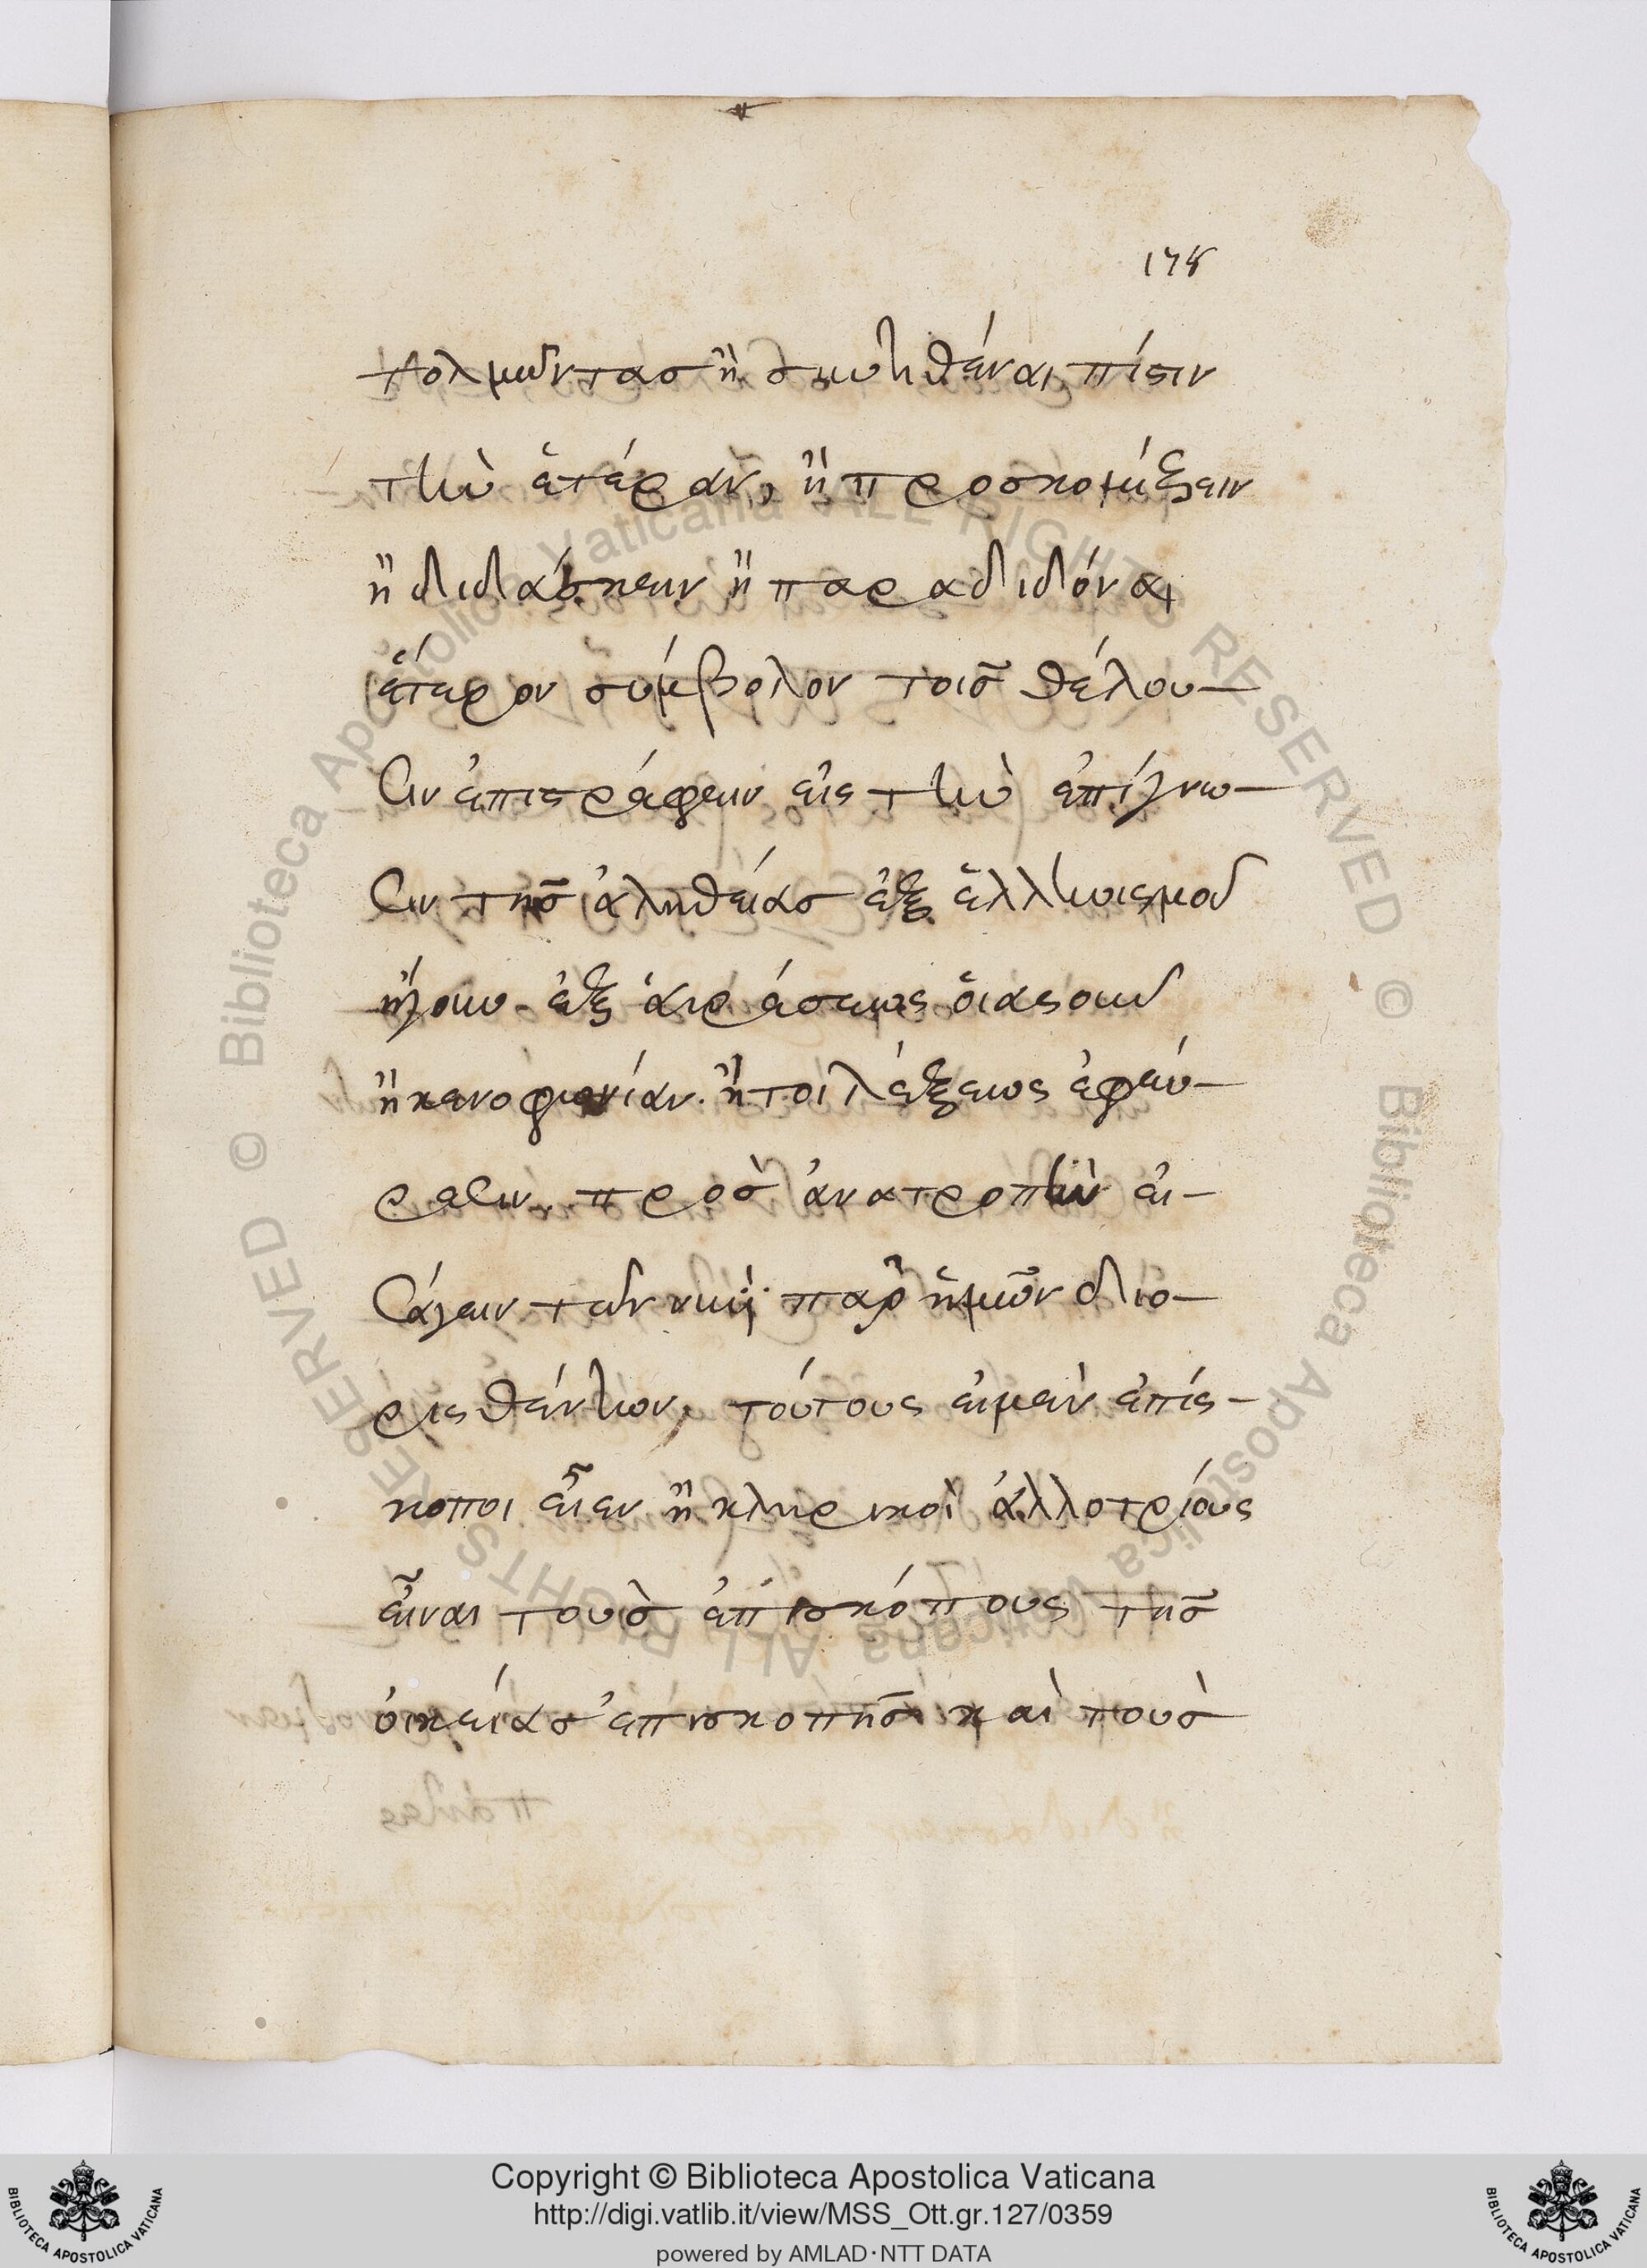 178
τολμῶντας ἢ συντιθέναι πίστιν
τὴν ἑτέραν, ἢ προσκομίζειν
ἢ διδάσκειν ἢ παραδιδόναι
ἕτερον σύμβολον τοῖς θέλου-
σιν ἐπιστρέφειν εἰς τὴν ἐπίγνω-
σιν τῆς ἀληθείας ἐξ ἑλληνισμοῦ
ἤγουν ἐξ αἱρέσεως οἱασοῦν
ἢ κενοφωνίαν ἤτοι λέξεως ἐφεύ-
ρεσιν πρὸς ἀνατροπὴν εἰ-
σάγειν τῶν νυνὶ παρ' ἡμῶν διο-
ρισθέντων, τούτους εἰ μὲν ἐπίσ-
κοποι εἶεν ἢ κληρικοὶ ἀλλοτρίους
εἶναι τοὺς ἐπισκόπους τῆς
οἰκείας ἐπισκοπῆς καὶ τοὺς
© Biblioteca Apostolica Vaticana ALL RIGHTS RESERVED
© Biblioteca Apostolica Vaticana ALL RIGHTS RESERVED
Copyright © Biblioteca Apostolica Vaticana
http://digi.vatlib.it/view/MSS_Ott.gr.127/0359
powered by AMLAD·NTT DATA
BIBLIOTECA APOSTOLICA VATICANA
BIBLIOTECA APOSTOLICA VATICANA